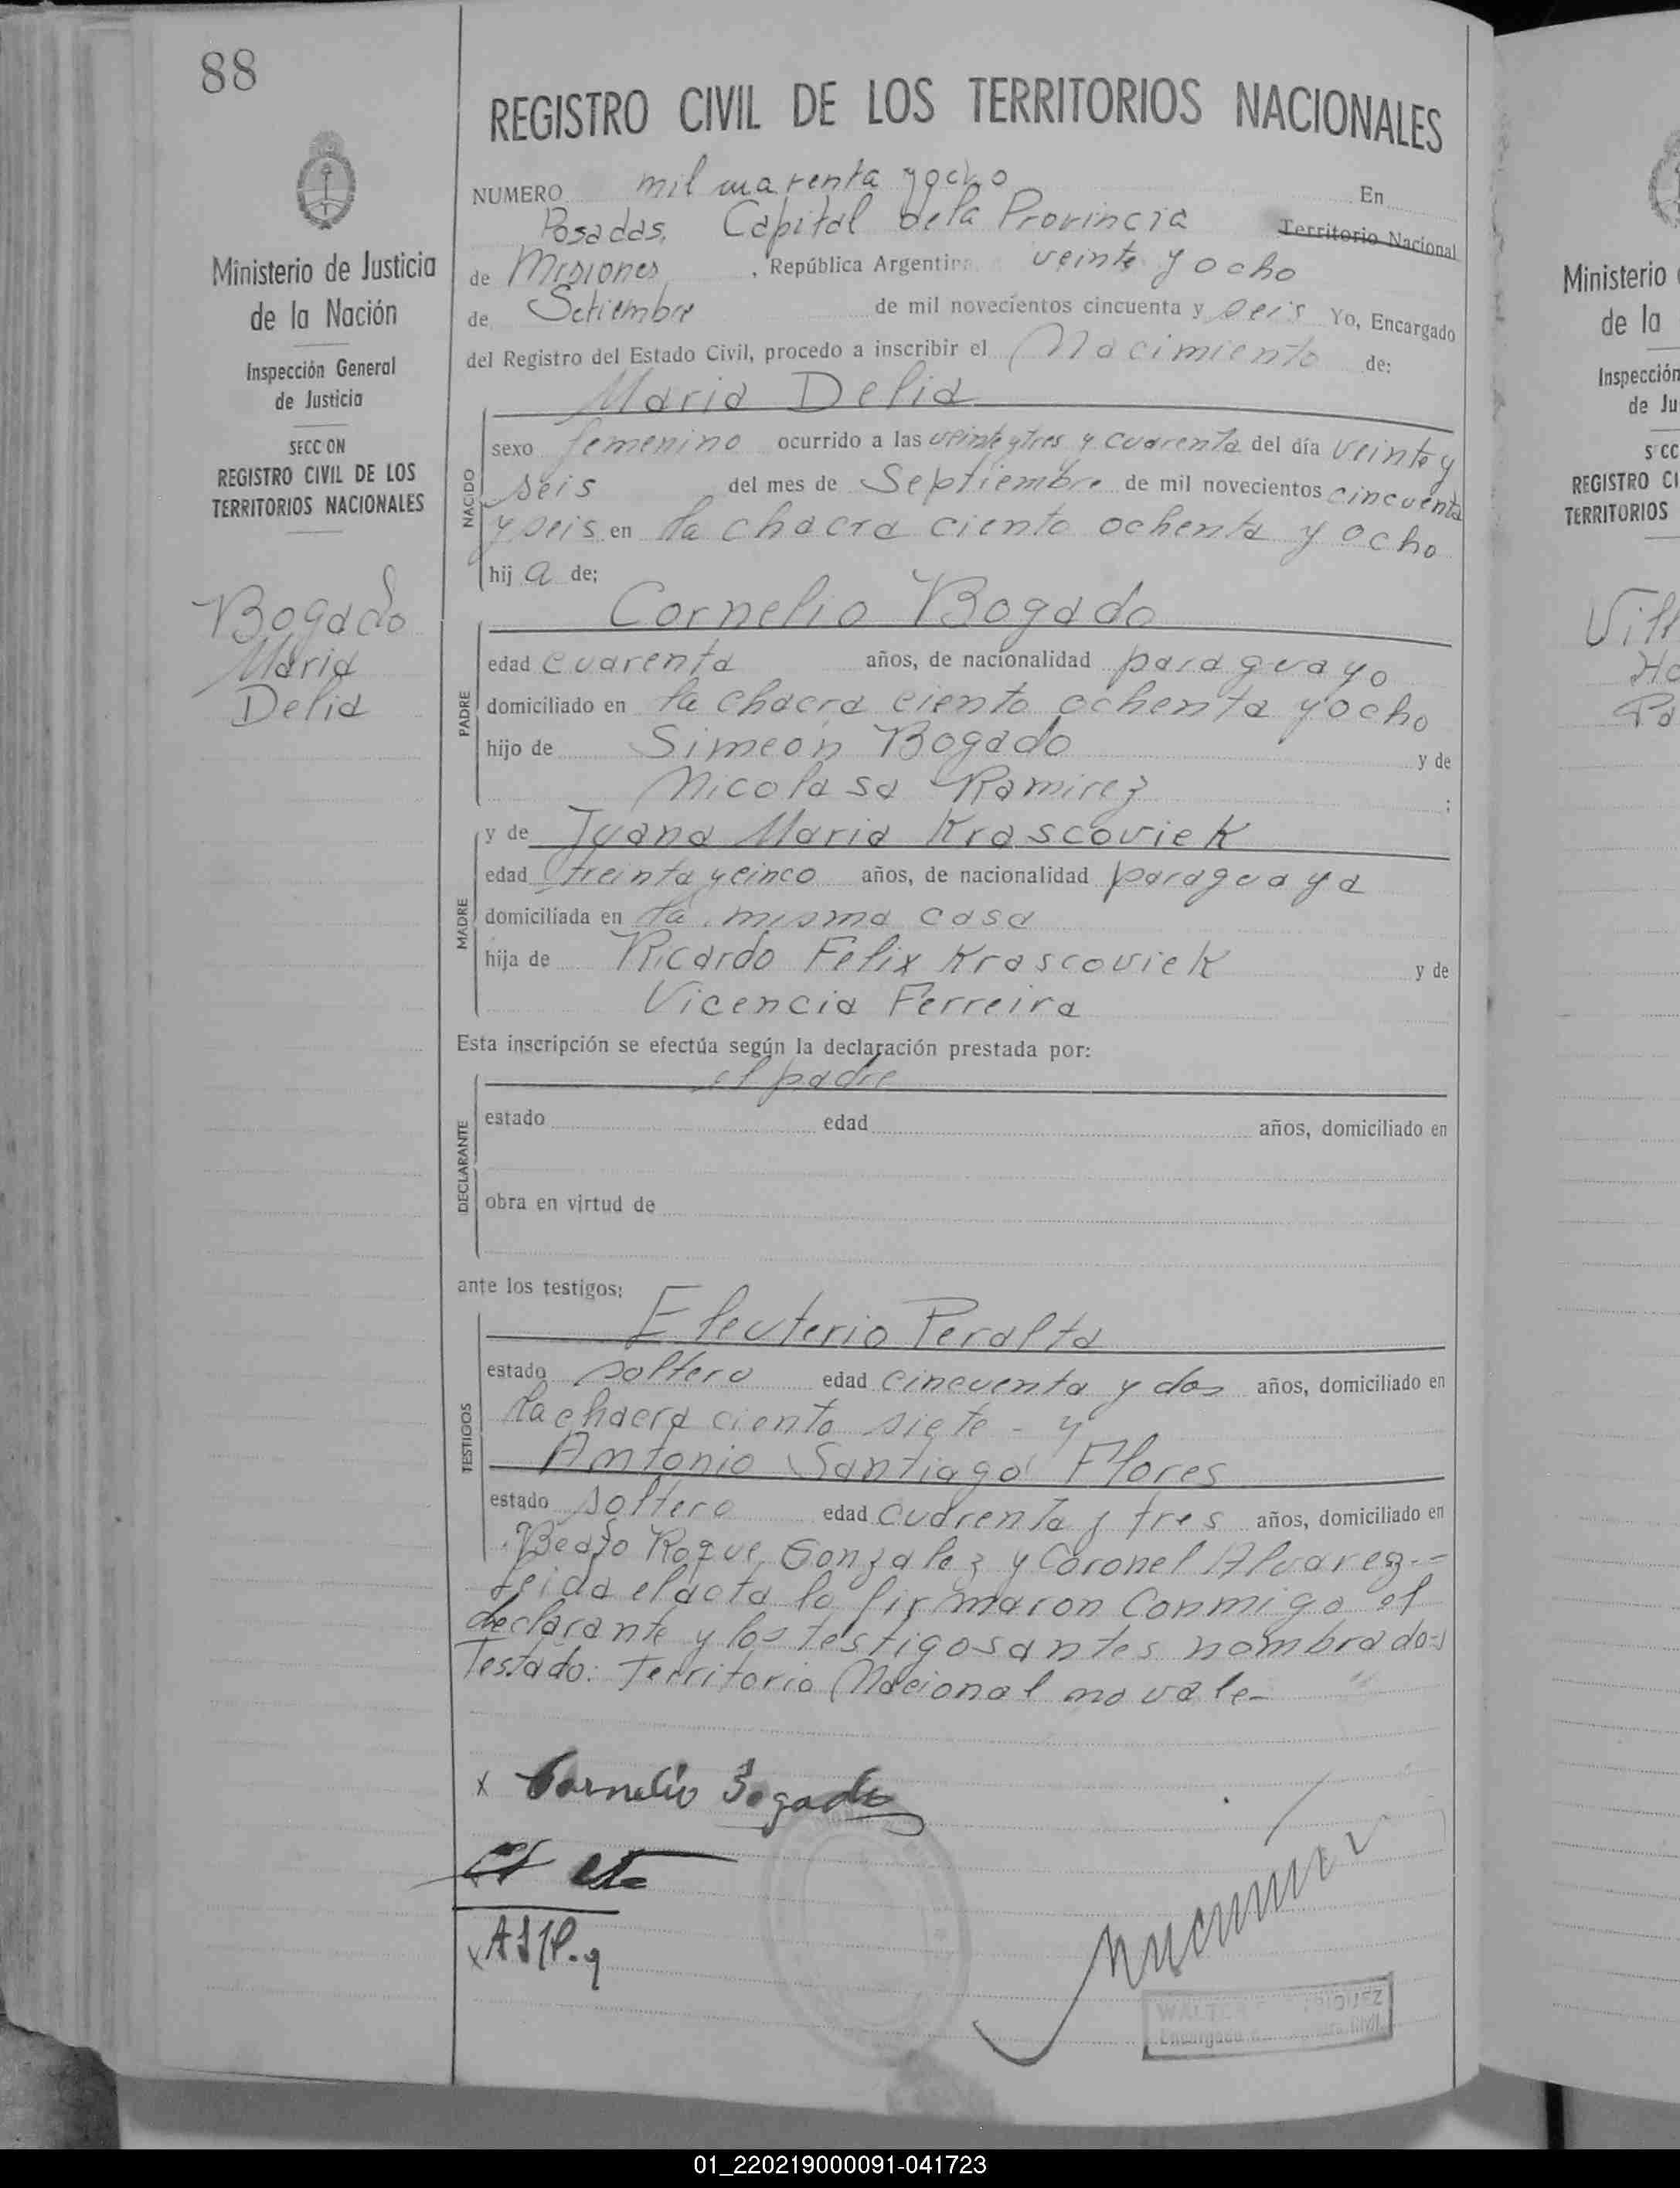 88
REGISTRO CIVIL DE LOS TERRITORIOS NACIONALES
NUMERO mil cuarenta y ocho En
Posadas, Capital de la Provincia Territorio Nacional
de Misiones, República Argentina veinte y ocho
de Setiembre de mil novecientos cincuenta y seis Yo, Encargado
del Registro del Estado Civil, procedo a inscribir el Nacimiento de:
Maria Delia
NACIDO
sexo femenino ocurrido a las veinte y tres y cuarenta del día veinte y
seis del mes de Septiembre de mil novecientos cincuenta
y seis en la chacra ciento ochenta y ocho
hij a de;
Cornelio Bogado
PADRE
edad cuarenta años, de nacionalidad paraguayo
domiciliado en la chacra ciento ochenta y ocho
hijo de Simeon Bogado y de
Nicolasa Ramirez ;
MADRE
y de Juana Maria Krascoviek
edad treinta y cinco años, de nacionalidad paraguaya
domiciliada en la misma casa
hija de Ricardo Felix Krascoviek y de
Vicencia Ferreira
Esta inscripción se efectúa según la declaración prestada por:
el padre
DECLARANTE
estado edad años, domiciliado en
obra en virtud de
ante los testigos:
Eleuterio Peralta
TESTIGOS
estado soltero edad cincuenta y dos años, domiciliado en
la chacra ciento siete - y
Antonio Santiago Flores
estado soltero edad cuarenta y tres años, domiciliado en
Beato Roque Gonzalez y Coronel Alvarez.-
Leida el acta la firmaron conmigo el
declarante y los testigos antes nombrados
Testado: Territorio Nacional no vale-
x Cornelio Bogado
Ministerio de Justicia
de la Nación
Inspección General
de Justicia
SECCION
REGISTRO CIVIL DE LOS
TERRITORIOS NACIONALES
Bogado
Maria
Delia
WALTER
Encargado
Ministerio
de la
Inspección
de Ju
REGISTRO CI
TERRITORIOS
Vill
01_220219000091-041723